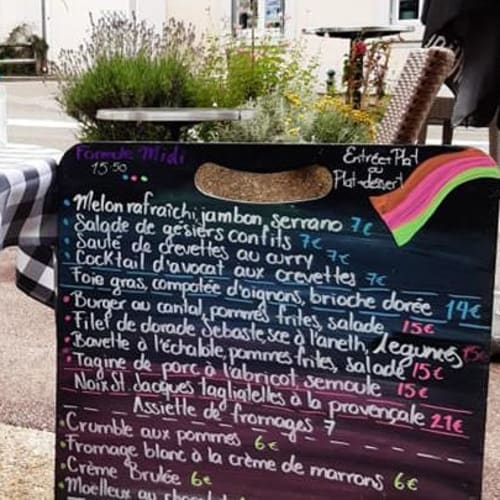 Formule Midi
15.50
Entrée+Plat
ou
Plat+dessert
• Melon rafraîchi, jambon, serrano 7€
• Salade de gésiers confits 7€
• Sauté de crevettes au curry 7€
• Cocktail d'avocat aux crevettes 7€
Foie gras, compotée d'oignons, brioche dorée 14€
• Burger au cantal, pommes frites, salade 15€
• Filet de dorade Sébaste, sce à l'aneth, légumes 15€
• Bavette à l'échalote, pommes frites, salade 15€
• Tagine de porc à l'abricot, semoule 15€
Noix St. Jacques tagliatelles à la provençale 21€
Assiette de fromages 7
• Crumble aux pommes 6€
• Fromage blanc à la crème de marrons 6€
• Crème Brulée 6€
• Moelleux au chocolat